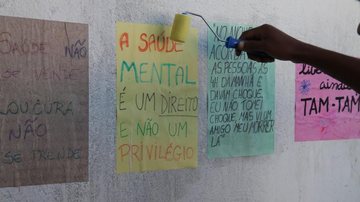 SAÚDE
NÃO
SE VENDE
LOUCURA
NÃO
SE PRENDE
A SAÚDE
MENTAL
É UM DIREITO
E NÃO UM
PRIVILÉGIO
"NO
ACORDA
AS PESSOAS ÀS
4H DA MANHÃ E
DAVAM CHOQUE.
EU NÃO TOMEI
CHOQUE, MAS VI UM
AMIGO MEU MORRER
LÁ"
ainda
TAM-TAM